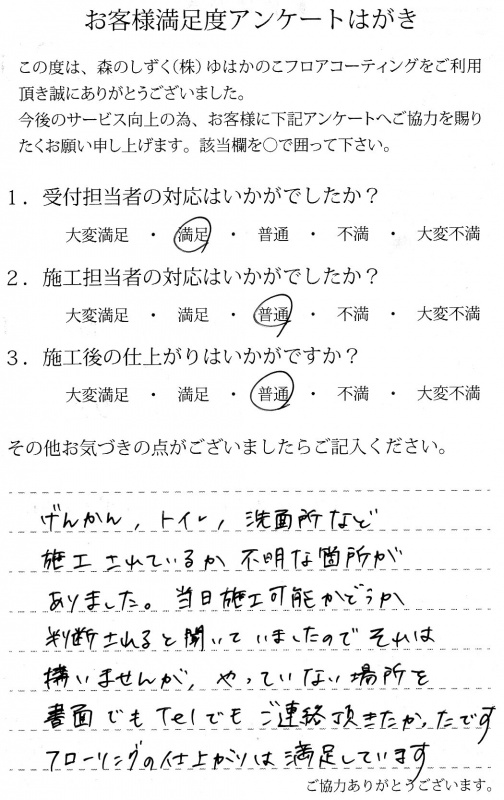 お客様満足度アンケートはがき
この度は、森のしずく(株)ゆはかのこフロアコーティングをご利用
頂き誠にありがとうございました。
今後のサービス向上の為、お客様に下記アンケートへご協力を賜り
たくお願い申し上げます。該当欄を○で囲って下さい。
1．受付担当者の対応はいかがでしたか？
大変満足 ・ 満足 ・ 普通 ・ 不満 ・ 大変不満
2．施工担当者の対応はいかがでしたか？
大変満足 ・ 満足 ・ 普通 ・ 不満 ・ 大変不満
3．施工後の仕上がりはいかがですか？
大変満足 ・ 満足 ・ 普通 ・ 不満 ・ 大変不満
その他お気づきの点がございましたらご記入ください。
げんかん，トイレ，洗面所など
施工されているか不明な箇所が
ありました。当日施工可能かどうか
判断されると聞いていましたのでそれは
構いませんが、やっていない場所を
書面でもTelでもご連絡頂きたかったです
フローリングの仕上がりは満足しています
ご協力ありがとうございます。